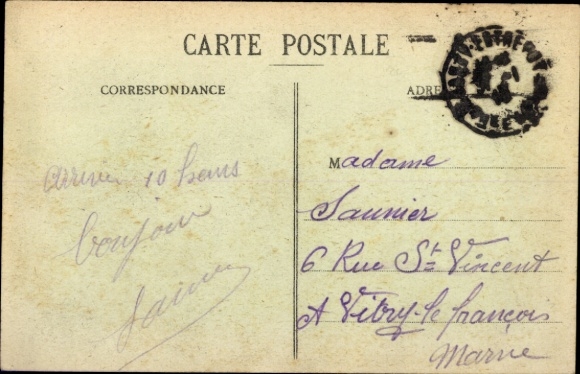 CARTE POSTALE
CORRESPONDANCE
ADRE
Madame
Saunier
6 Rue St Vincent
A Vitry-le françois
Marne
10 heurs
bonjour